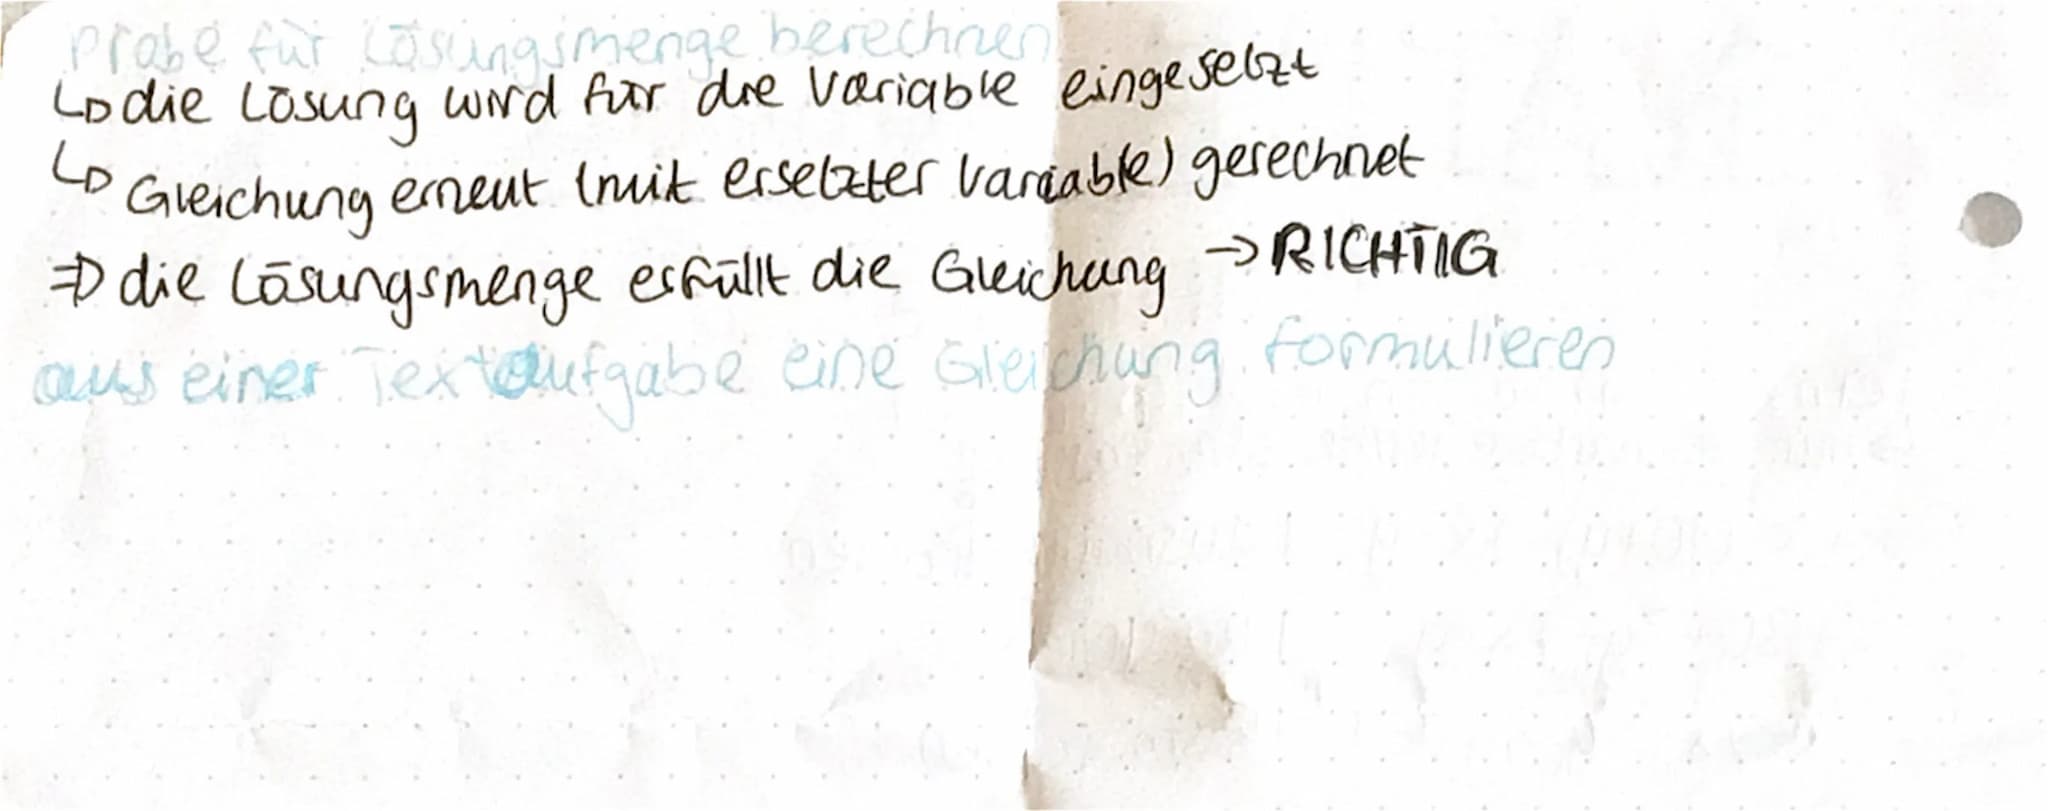 Probe für Lösungsmenge berechnen
↳ die Lösung wird für die Variable eingesetzt
↳ Gleichung erneut (mit ersetzter Variable) gerechnet
⇒ die Lösungsmenge erfüllt die Gleichung → RICHTIG
aus einer Textaufgabe eine Gleichung formulieren